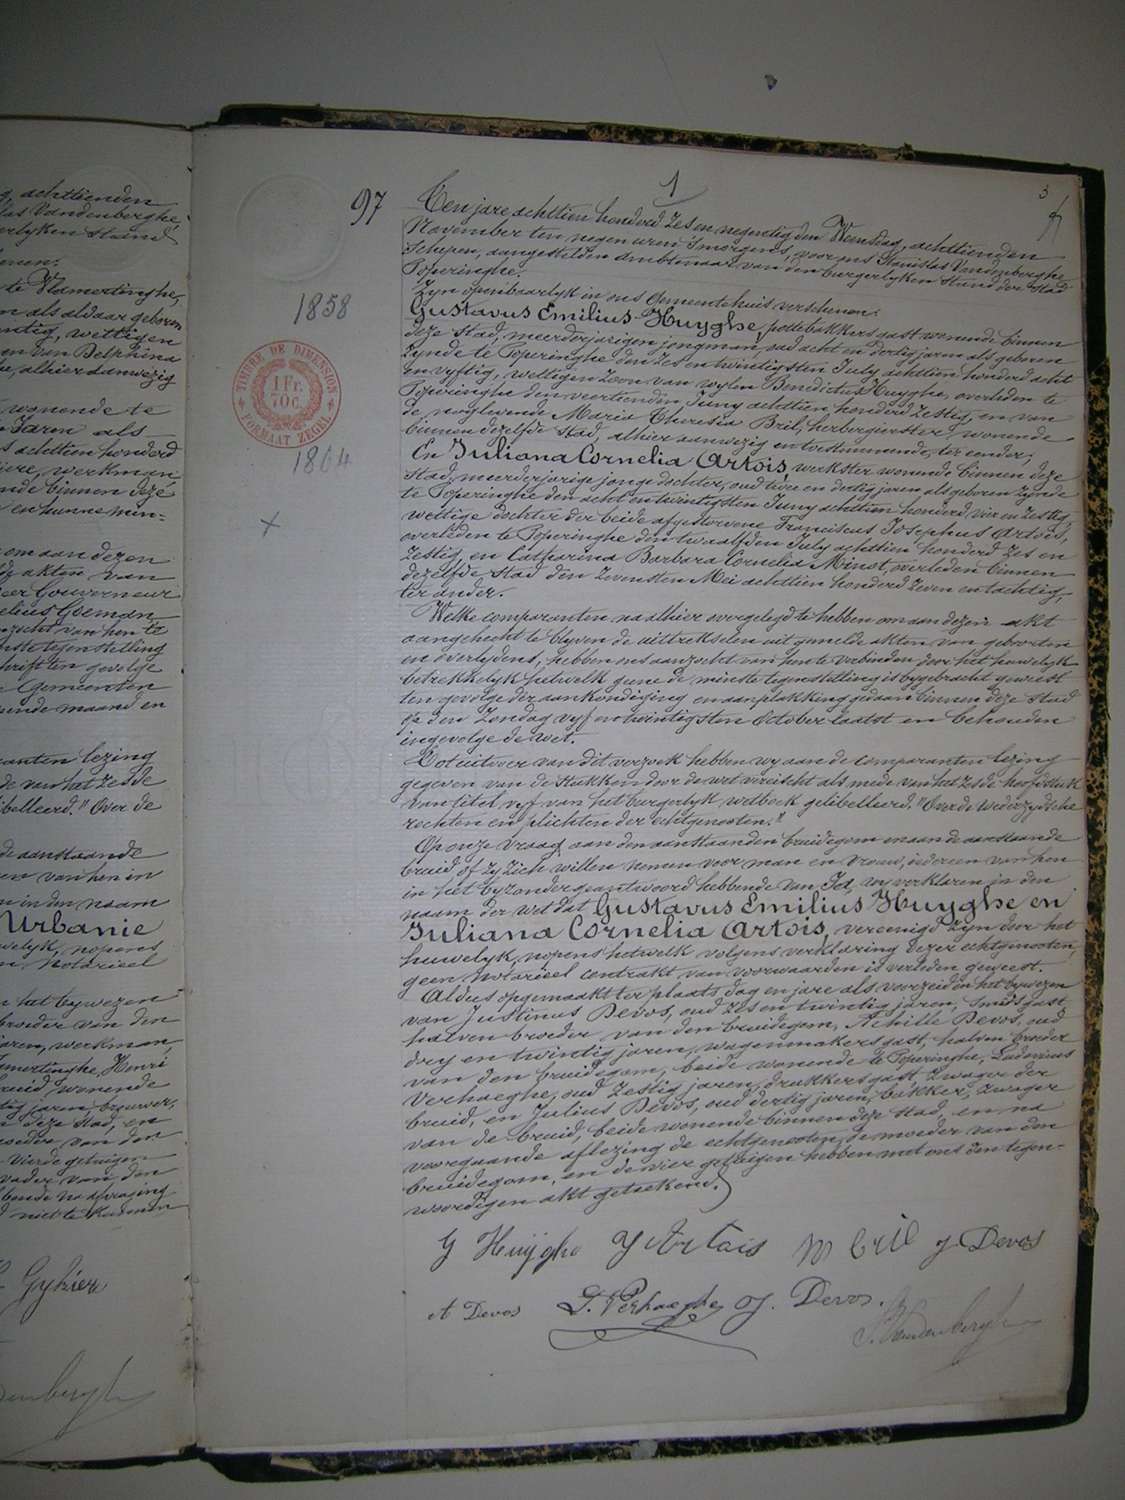 1
3
97
Ten jare achttien honderd zes en negentig den Woensdag, achttienden
November ten negen uren 's morgens, voor ons Stanislas Vandenberghe
Schepen, aangestelden ambtenaar van den burgerlyken stand der stad
Poperinghe.
Zyn openbaarlyk in ons Gemeentehuis verschenen:
1858
Gustavus Emilius Huyghe, pottebakkersgast wonende binnen
deze stad, meerderjarigen jongman, oud acht en dertig jaren als geboren
zynde te Poperinghe den zes en twintigsten July achttien honderd acht
en vyftig, wettigen zoon van wylen Benedictus Huyghe, overleden te
Poperinghe den veertienden Juny achttien honderd zestig, en van
de nagelevende Maria Theresia Bril, herbergierster wonende
binnen dezelfde stad, alhier aanwezig en toestemmende, ter eender;
TIMBRE DE DIMENSION
1 Fr.
70 c.
FORMAAT ZEGEL
1864
En Juliana Cornelia Artois, werkster, wonende binnen deze
stad, meerderjarige jonge dochter, oud twee en dertig jaren als geboren zynde
te Poperinghe den acht en twintigsten Juny achttien honderd vier en zestig,
wettige dochter der beide afgestorvene Franciscus Josephus Artois,
overleden te Poperinghe den twaalfden July achttien honderd zes en
zestig, en Catharina Barbara Cornelia Minst, overleden binnen
dezelfde stad den zevensten Mei achttien honderd zeven en tachtig,
ter ander.
Welke comparanten na alhier overgelegd te hebben om aan dezen akt
aangehecht te blyven de uittrekselen uit gemelde akten van geboorten
en overlydens, hebben ons aanzocht van hen te verbinden door het huwelyk
betrekkelyk hetwelk geene de minste tegenstelling is bygebracht geweest
ten gevolge der aankondiging en aanplakking gedaan binnen deze stad
op den Zondag vyf en twintigsten October laatst en behouden
ingevolge de wet.
Tot uitvoer van dit verzoek hebben wy aan de comparanten lezing
gegeven van de stukken door de wet vereischt als mede van het zesde hoofdstuk
van titel vyf van het burgerlyk wetboek gelibelleerd. "Over de wederzydsche
rechten en plichten der echtgenooten."
Op onze vraag aan den aanstaanden bruidegom en aan de aanstaande
bruid of zy zich willen nemen voor man en vrouw, iedereen van hen
in het byzonder geantwoord hebbende van Ja, wy verklaren in den
naam der wet dat Gustavus Emilius Huyghe en
Juliana Cornelia Artois, vereenigd zyn door het
huwelyk, nopens hetwelk volgens verklaring dezer echtgenooten,
geen notariëel contrakt van voorwaarden is verleden geweest.
Aldus opgemaakt ter plaats dag en jare als voorzeid in het bywezen
van Justinus Devos, oud zes en twintig jaren, smidsgast,
halven broeder van den bruidegom, Achille Devos, oud
dry en twintig jaren, wagenmakersgast, halven broeder
van den bruidegom, beide wonende te Poperinghe, Ludovicus
Verhaeghe, oud zestig jaren, drukkersgast zwager der
bruid, en Julius Devos, oud dertig jaren, bakker, zwager
van de bruid, beide wonende binnen deze stad, en na
voorgaande aflezing de echtgenooten, de moeder van den
bruidegom, en de vier getuigen hebben met ons den tegen-
woordigen akt geteekend.
G Huÿghe J Artois M Bril J. Devos
A Devos L. Verhaeghe J. Devos.
S. Vandenberghe
g, achttienden
las Vandenberghe
erlyken stand
enen:
te Vlamertinghe,
n als aldaar geboren
entig, wettigen
en van Delphina
he, alhier aanwezig
wonende te
jaren als
s achttien honderd
iere, werkman
nde binnen deze
en hunne min-
om aan dezen
dy akten van
eer Gouverneur
elius Goeman
nzocht van hen te
nste tegenstelling
hriften gevolge
e Gemeenten
ende maand en
anten lezing
de van het zesde
ibelleerd." Over de
de aanstaande
eer van hen in
n in den naam
Urbanie
welyk, nopens
n notariëel
n het bywezen
broeder van den
jaren, werkman,
amertinghe, Henri
bruid wonende
tig jaren, brouwer,
n deze stad, en
moeder van den
vierde getuigen
vader van den
bende na afvraging
d niet te kunnen
Gykier
denbergh